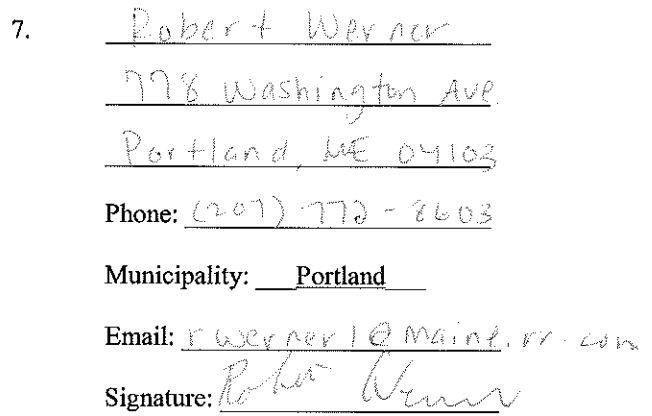 7. Robert Werner
778 Washington Ave
Portland, ME 04103
Phone: (207) 772-8603
Municipality: Portland
Email: rwerner1@maine.rr.com
Signature: Robert Werner